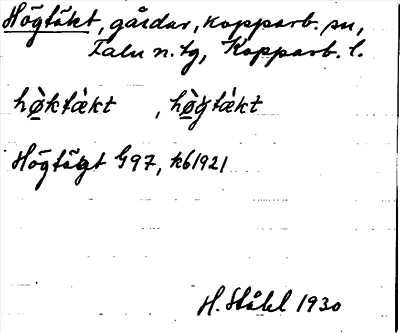 Högtäkt, gårdar, Kopparb. sn,
Falu n. tg, Kopparb. l.
hø̀ktæ̀kt , hø̀gtæ̀kt
Högtägt G97, kb1921
H. Ståhl 1930